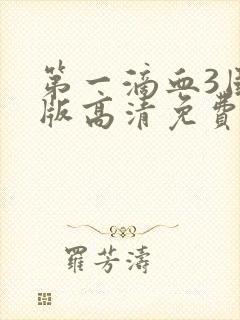 第一滴血3国
版高清免费
羅芳濤